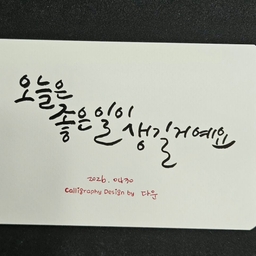 오늘은
좋은일이
생길거예요
2026. 04.30
Calligraphy Design by 다운